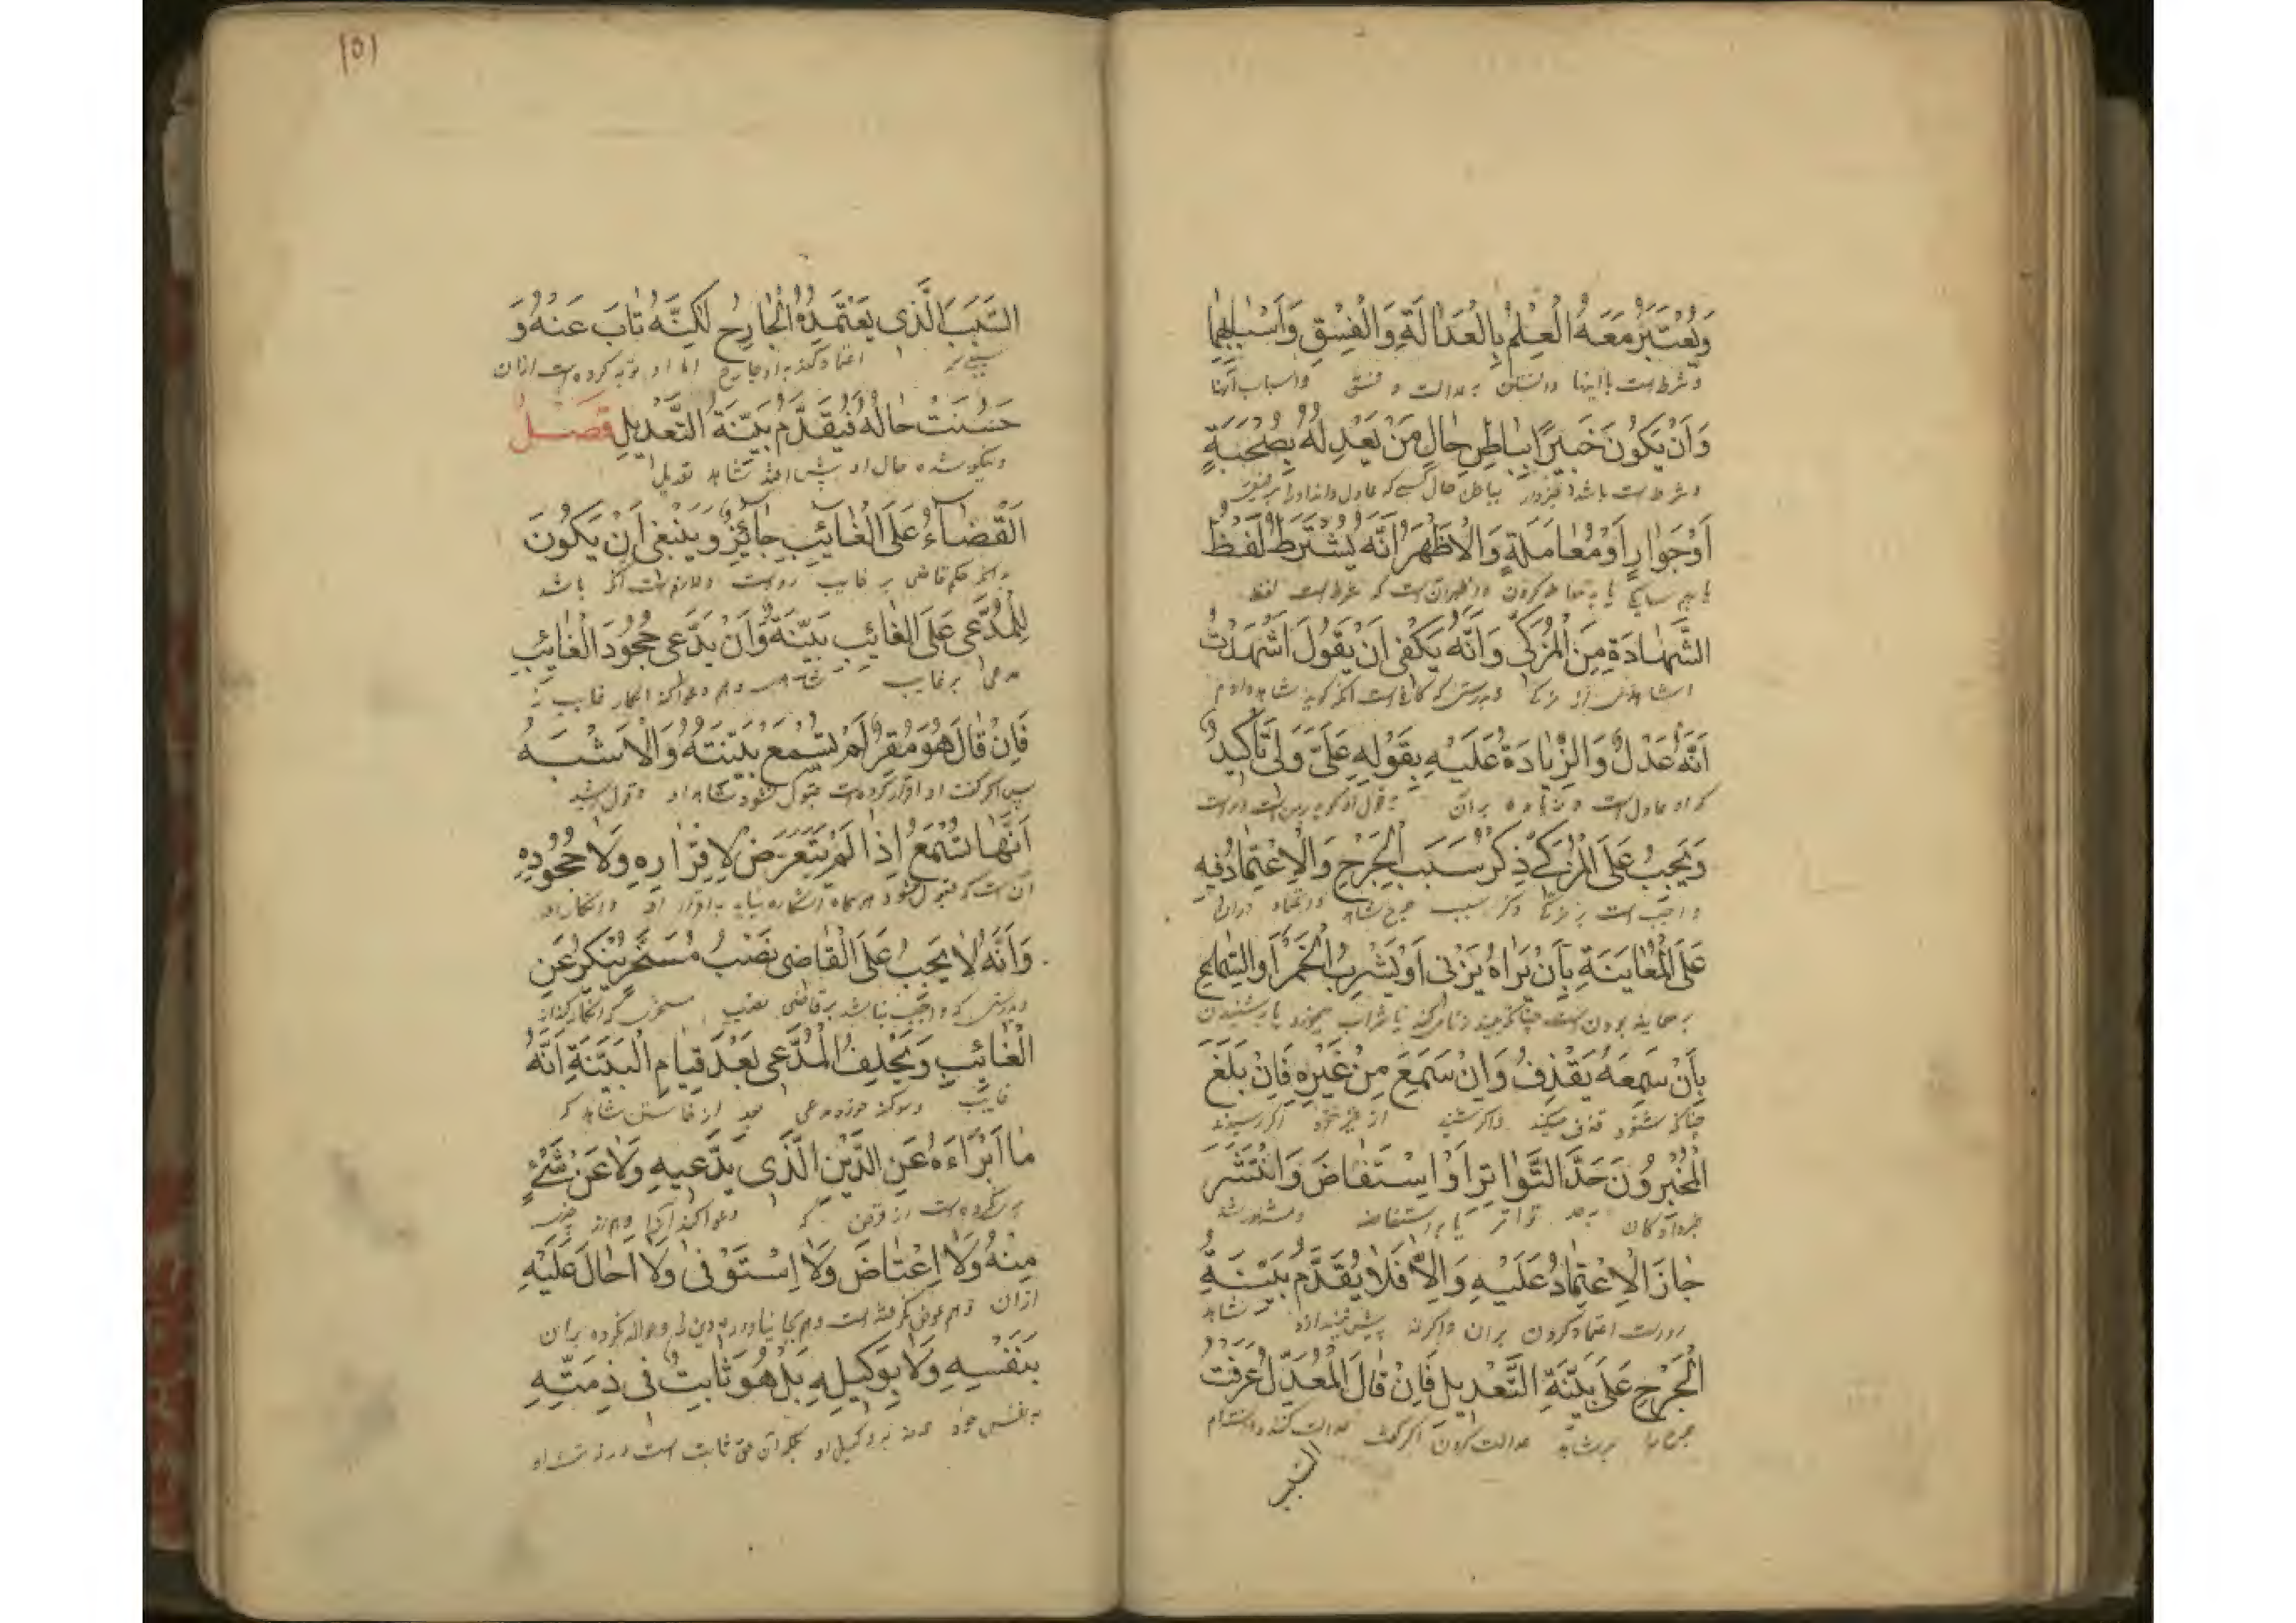 وَيُعْتَبَرُ مَعَهُ الْعِلْمُ بِالْعَدَالَةِ وَالْفِسْقِ وَأَسْبَابِهِمَا
و شرط است با اینها دانستن بعدالت و فسق و اسباب آنها
وَأَنْ يَكُونَ خَبِيرًا بِبَاطِنِ حَالِ مَنْ يُعَدِّلُهُ بِصُحْبَةٍ
و شرط است باشد خبردار بباطن حال کسی که عادل داند او را
أَوْ جِوَارٍ أَوْ مُعَامَلَةٍ وَالْأَظْهَرُ أَنَّهُ يُشْتَرَطُ لَفْظُ
یا هم سایکی یا به معامله کردن و اظهر آن است که شرط است لفظ
الشَّهَادَةِ مِنَ الْمُزَكِّي وَأَنَّهُ يَكْفِي أَنْ يَقُولَ أَشْهَدُ
از مزکی و بدرستی که کافی است آنکه کوید شاهدی دادم
أَنَّهُ عَدْلٌ وَالزِّيَادَةُ عَلَيْهِ بِقَوْلِهِ عَلَيَّ وَلِي تَأْكِيدٌ
که او عادل است و زیاده بران بقول او که
وَيَجِبُ عَلَى الْمُزَكِّي ذِكْرُ سَبَبِ الْجَرْحِ وَالْاِعْتِمَادُ فِيهِ
و واجب است بر مزکی ذکر سبب جرح شاهد و اعتماد دران
عَلَى الْمُعَايَنَةِ بِأَنْ يَرَاهُ يَزْنِي أَوْ يَشْرَبُ الْخَمْرَ أَوِ السِّمَاعِ
بر معاینه بودن است چنانکه بیند زنا میکند یا شراب میخورد یا بر شنیدن
بِأَنْ سَمِعَهُ يَقْذِفُ وَإِنْ سَمِعَ مِنْ غَيْرِهِ فَإِنْ بَلَغَ
چنانکه شنود قذف میکند و اگر شنید از غیر خود اگر رسیدند
الْمُخْبِرُونَ حَدَّ التَّوَاتُرِ أَوْ اِسْتَفَاضَ وَانْتَشَرَ
خبر دهندکان بحد تواتر یا استفاضه و مشهور شد
جَازَ الْاِعْتِمَادُ عَلَيْهِ وَإِلَّا فَلَا يُقَدَّمُ بَيِّنَةُ
رواست اعتماد کردن بران و اگرنه شاهد
الْجَرْحِ عَلَى بَيِّنَةِ التَّعْدِيلِ فَإِنْ قَالَ الْمُعَدِّلُ عَرَفْتُ
جرح را بر شاهد عدالت کردن اگر گفت عدالت کننده دانستم
السبب
١٥١
السَّبَبَ الَّذِي يَعْتَمِدُهُ الْجَارِحُ لَكِنَّهُ تَابَ عَنْهُ وَ
سببی را اعتماد کند به او جارح اما او توبه کرده است ازان
حَسُنَتْ حَالُهُ فَيُقَدَّمُ بَيِّنَةُ التَّعْدِيلِ فَصْلٌ
و نیکو شده حال او پیش شاهد تعدیل
اَلْقَضَاءُ عَلَى الْغَائِبِ جَائِزٌ وَيَنْبَغِي أَنْ يَكُونَ
حکم قاضی بر غایب رواست و لازم است آنکه باشد
لِلْمُدَّعِي عَلَى الْغَائِبِ بَيِّنَةٌ وَأَنْ يَدَّعِيَ جُحُودَ الْغَائِبِ
مدعی بر غایب شاهد و هم دعوا کند انکار غایب
فَإِنْ قَالَ هُوَ مُقِرٌّ لَمْ يُسْمَعْ بَيِّنَتُهُ وَالْأَشْبَهُ
پس اگر گفت او اقرار کرده است قبول نشود شاهد او و قول
أَنَّهَا تُسْمَعُ إِذَا لَمْ يَتَعَرَّضْ لِإِقْرَارِهِ وَلَا جُحُودِهِ
آن است که قبول شود به اقرار او و انکار او
وَأَنَّهُ لَا يَجِبُ عَلَى الْقَاضِي نَصْبُ مُسَخَّرٍ يُنْكِرُ عَنِ
و بدرستی که واجب نباشد بر قاضی نصب مسخری که انکار کند از
الْغَائِبِ وَيُحَلِّفُ الْمُدَّعِيَ بَعْدَ قِيَامِ الْبَيِّنَةِ أَنَّهُ
غایب و سوکند خورد مدعی بعد از شاهد که
مَا أَبْرَاءَهُ عَنِ الدَّيْنِ الَّذِي يَدَّعِيهِ وَلَا عَنْ شَيْءٍ
بری نکرده است از قرض که دعوا کند آنرا و هم از چیزی
مِنْهُ وَلَا اِعْتَاضَ وَلَا اِسْتَوْفَى وَلَا أَحَالَ عَلَيْهِ
ازان و هم عوض نکرفته است و حواله نکرده بران
بِنَفْسِهِ وَلَا بِوَكِيلِهِ بَلْ هُوَ ثَابِتٌ فِي ذِمَّتِهِ
به نفس خود و نه بوکیل او بلکه آن حق ثابت است در ذمت او